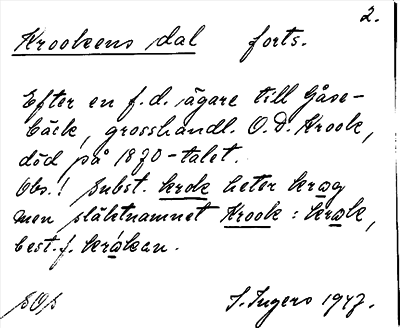 2.
Krookens dal forts.
Efter en f.d. ägare till Gåse-
bäck, grosshandl. O.D. Krook,
död på 1870-talet.
Obs.! subst. krok heter krog
men släktnamnet Krook: krok,
best.f. krokan.
SOS S. Ingers 1947.